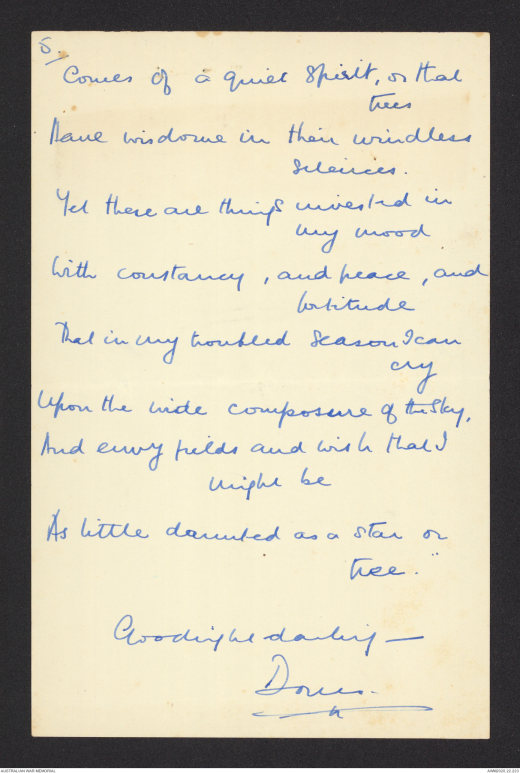 5.
Comes of a quiet spirit, or that
trees
Have wisdome in their windless
silences.
Yet these are things invested in
my mood
With constancy, and peace, and
fortitude
That in my troubled season I can
cry
Upon the wide composure of the sky,
And envy fields and wish that I
might be
As little daunted as a star or
tree."
Goodnight darling —
AUSTRALIAN WAR MEMORIAL